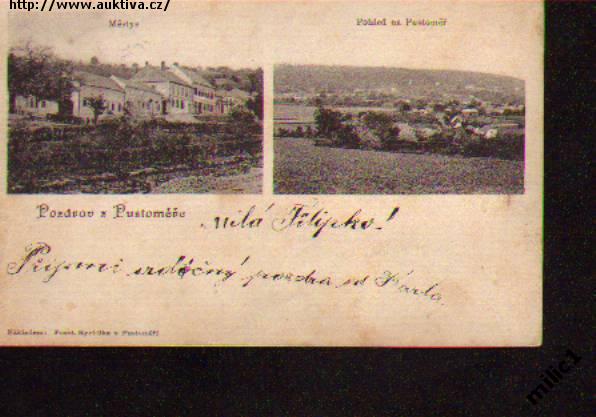 http://www.auktiva.cz/
Městys
Pohled na Pustoměř
Pozdrov z Pustoměře
Milá Filipko!
Přijmi srdečný pozdra od Karla.
Nákladem: Frant. v Pustoměři
milic1